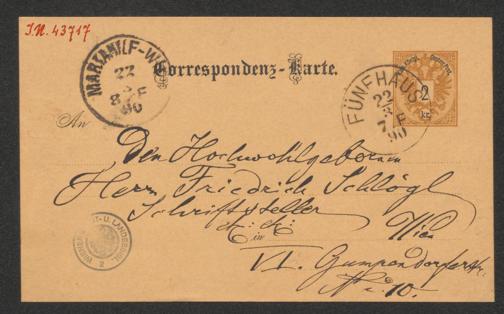 I.N. 43717
MARIAHILF-W
22
3
8 F
90
Correspondenz-Karte.
2
FÜNFHAUS
22
3
7 F
90
An
Den Hochwohlgebornen
Herrn Friedrich Schlögl
Schriftsteller
etc. etc.
in
Wien
VI. Gumpendorferstr.
No. 10.
U. LANDESBIBL.